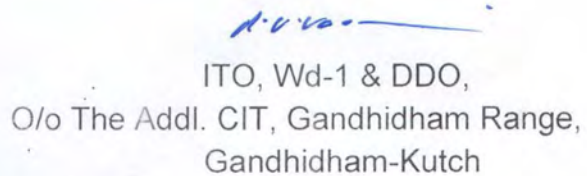 ITO, Wd-1 & DDO,
O/o The Addl. CIT, Gandhidham Range,
Gandhidham-Kutch